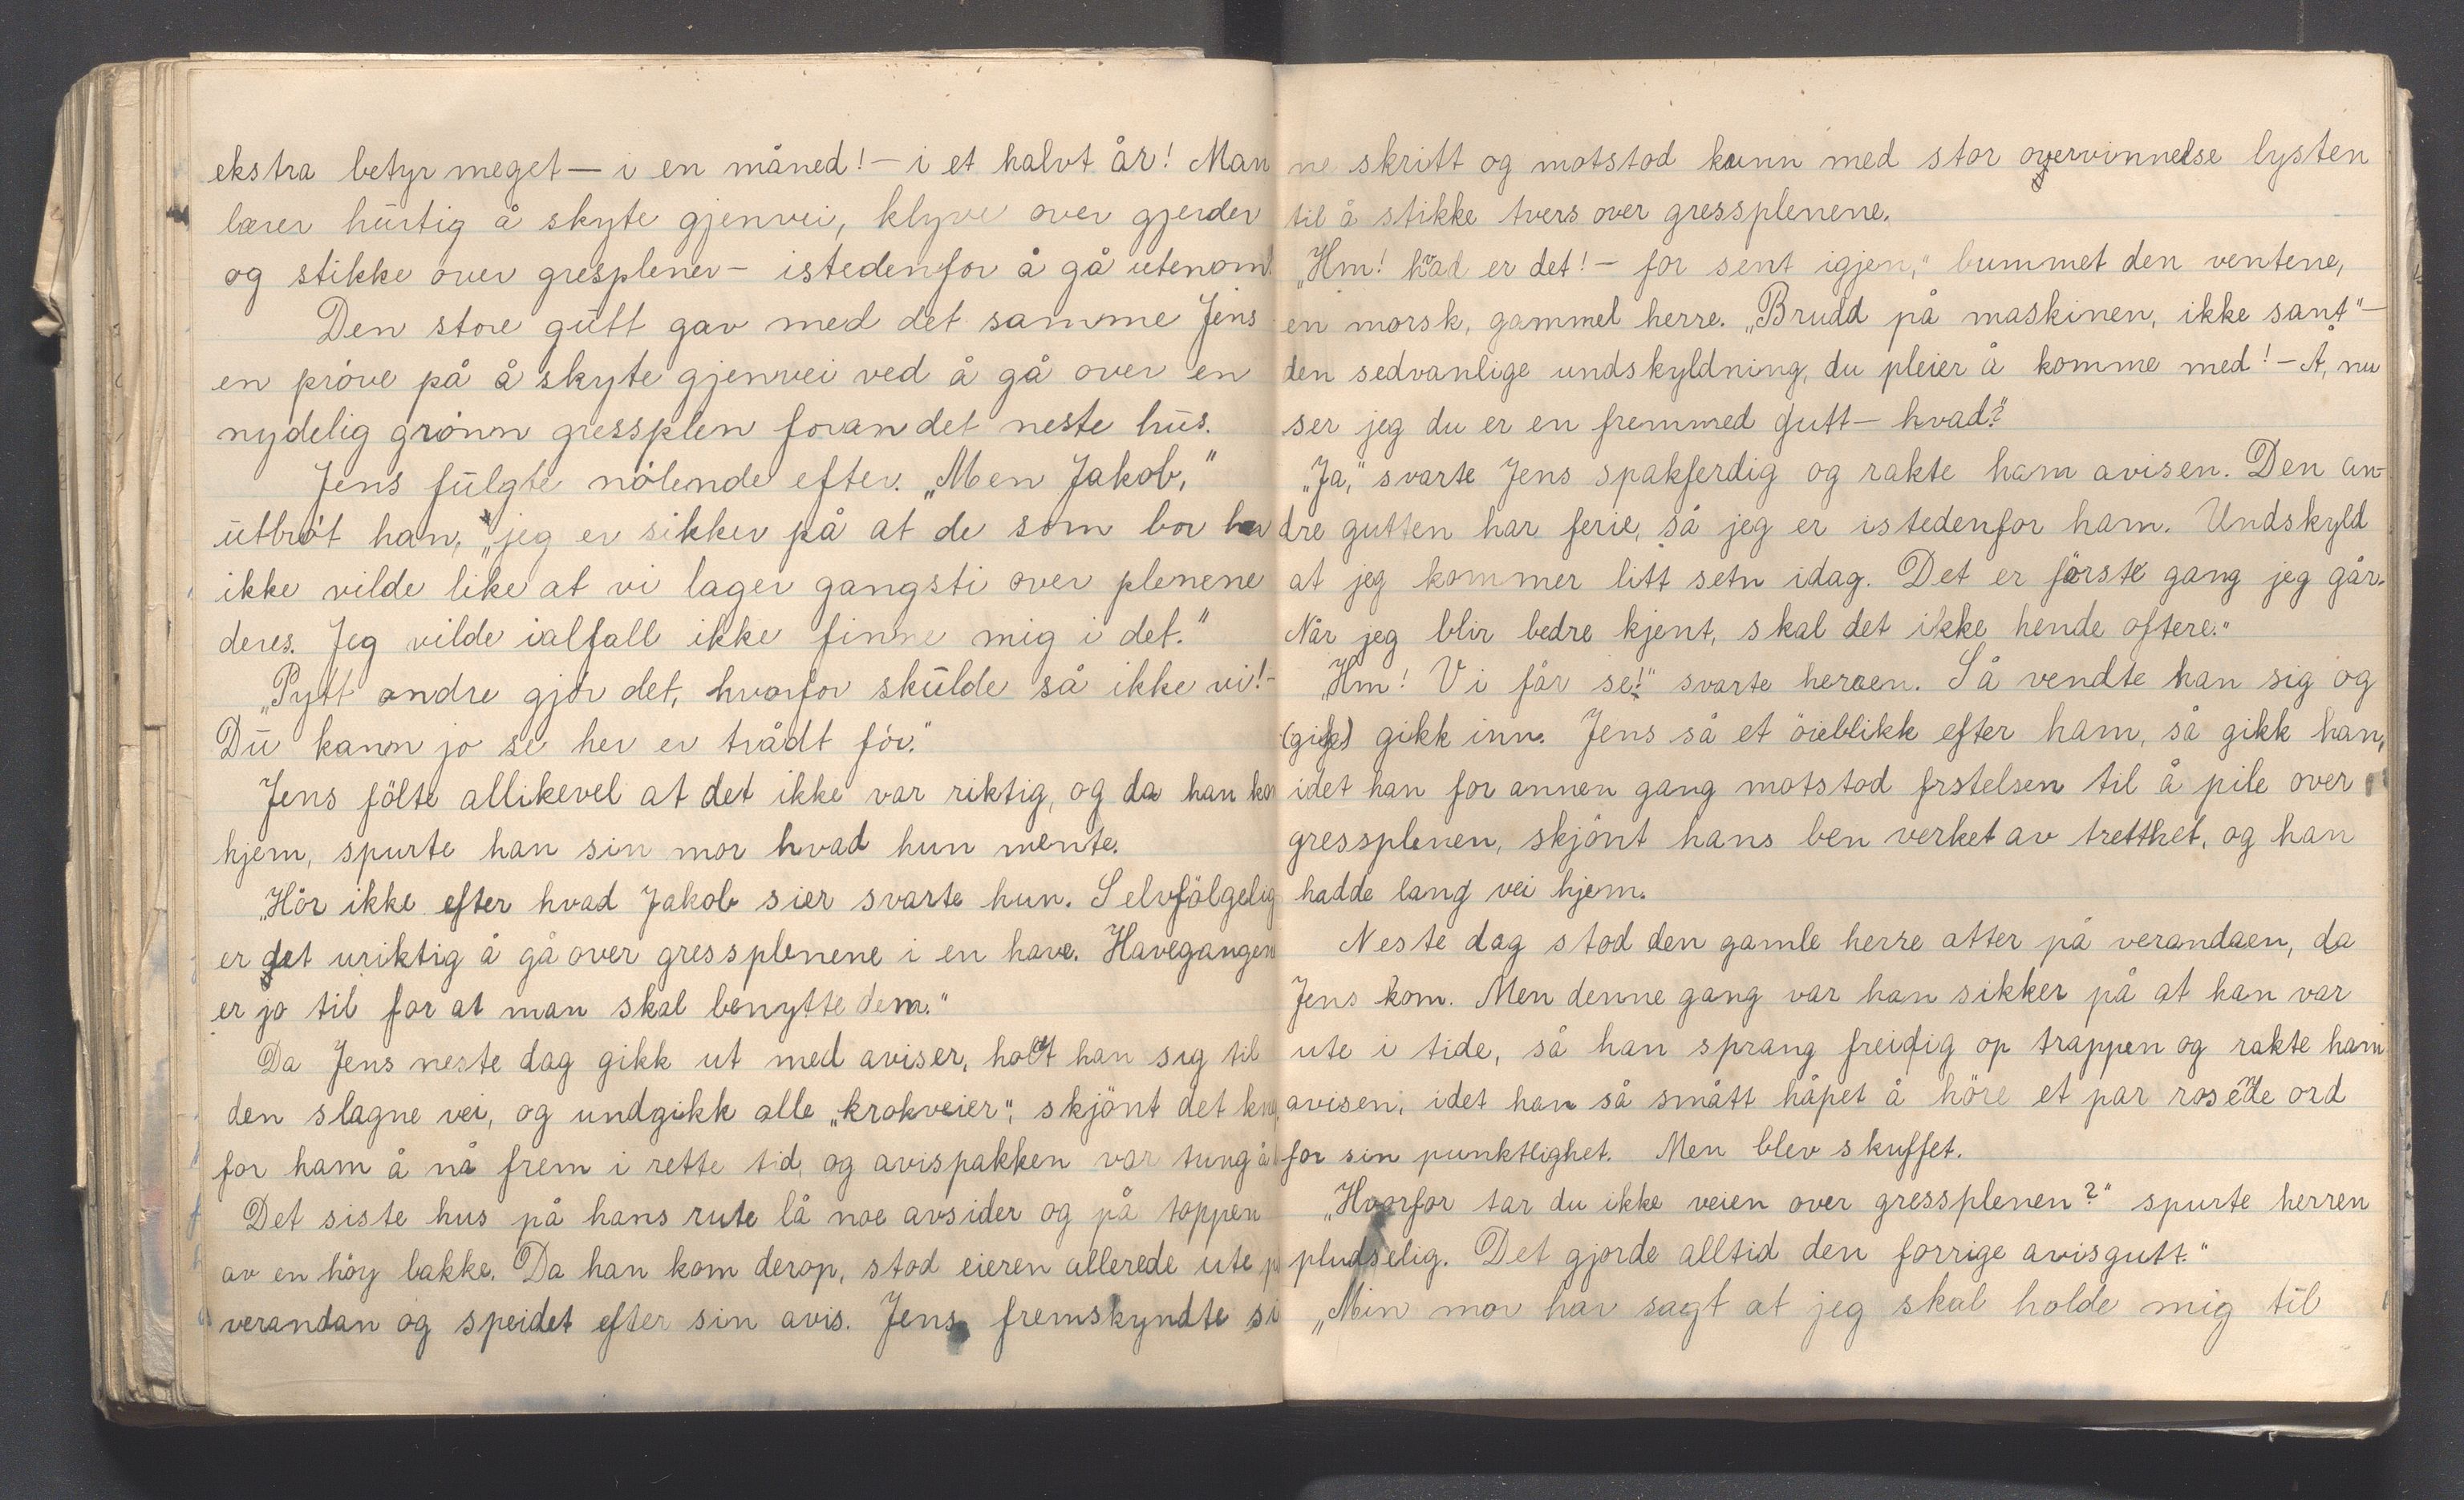 ekstra betyr meget — i en måned! — i et halvt år! Man
lærer hurtig å skyte gjenvei, klyve over gjerder
og stikke over gresplener — istedenfor å gå utenom!
Den store gutt gav med det samme Jens
en pröve på å skyte gjenvei ved å gå over en
nydelig grönn gressplen foran det neste hus.
Jens fulgte nölende efter. „Men Jakob,"
utbröt han, „jeg er sikker på at de som bor her
ikke vilde like at vi lager gangsti over plenene
deres. Jeg vilde ialfall ikke finne mig i det."
„Pytt andre gjör det, hvorfor skulde så ikke vi! -
Du kann jo se her er trådt för."
Jens fölte allikevel at det ikke var riktig, og da han kom
hjem, spurte han sin mor hvad hun mente.
„Hör ikke efter hvad Jakob sier svarte hun. Selvfölgelig
er det uriktig å gå over gressplenene i en have. Havegangen
er jo til for at man skal benytte dem."
Da Jens neste dag gikk ut med aviser, holdt han sig til
den slagne vei, og undgikk alle „krokveier", skjönt det kneb
for ham å nå frem i rette tid, og avispakken var tung å
Det siste hus på hans rute lå noe avsider og på toppen
av en höy bakke. Da han kom derop, stod eieren allerede ute på
verandan og speidet efter sin avis. Jens fremskyndte si
ne skritt og motstod kunn med stor overvinnelse lysten
til å stikke tvers over gressplenene.
„Hm! hvad er det! — for sent igjen," bummet den ventene,
en morsk, gammel herre. „Brudd på maskinen, ikke sant" —
den sedvanlige undskyldning, du pleier å komme med! — Å, nu
ser jeg du er en fremmed gutt — hvad?"
„Ja," svarte Jens spakferdig og rakte ham avisen. Den an-
dre gutten har ferie, så jeg er istedenfor ham. Undskyld
at jeg kommer litt setn idag. Det er förste gang jeg går.
Når jeg blir bedre kjent, skal det ikke hende oftere."
„Hm! Vi får se!" svarte herren. Så vendte han sig og
(gikk) gikk inn. Jens så et öieblikk efter ham, så gikk han,
idet han for annen gang motstod frstelsen til å pile over
gressplenen, skjönt hans ben verket av tretthet, og han
hadde lang vei hjem.
Neste dag stod den gamle herre atter på verandaen, da
Jens kom. Men denne gang var han sikker på at han var
ute i tide, så han sprang freidig op trappen og rakte ham
avisen, idet han så smått håpet å höre et par rosende ord
for sin punktlighet. Men blev skuffet.
„Hvorfor tar du ikke veien over gressplenen?" spurte herren
pludselig. Det gjorde alltid den forrige avisgutt."
„Min mor har sagt at jeg skal holde mig til